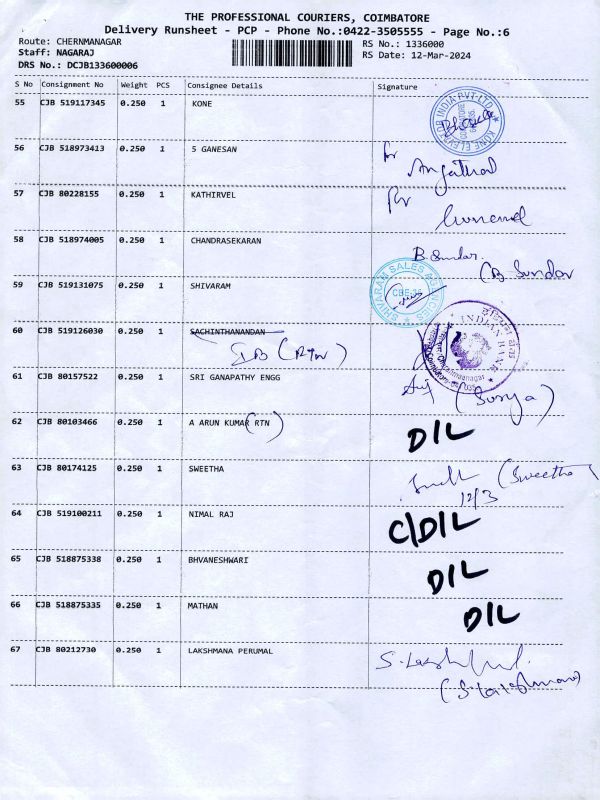 THE PROFESSIONAL COURIERS, COIMBATORE
Delivery Runsheet - PCP - Phone No.:0422-3505555 - Page No.:6
Route: CHERNMANAGAR RS No.: 1336000
Staff: NAGARAJ RS Date: 12-Mar-2024
DRS No.: DCJB133600006
S No Consignment No Weight PCS Consignee Details Signature
55 CJB 519117345 0.250 1 KONE
KONE ELEVATOR INDIA PVT LTD
56 CJB 518973413 0.250 1 S GANESAN
for
57 CJB 80228155 0.250 1 KATHIRVEL
58 CJB 518974005 0.250 1 CHANDRASEKARAN
B. Sundar
(B Sundar
59 CJB 519131075 0.250 1 SHIVARAM
SHIVARAM SALES AGENCIES
CBE-36
60 CJB 519126030 0.250 1 SACHINTHANANDAN
INDIAN BANK
61 CJB 80157522 0.250 1 SRI GANAPATHY ENGG
(Surya)
62 CJB 80103466 0.250 1 A ARUN KUMAR (RTN)
D/L
63 CJB 80174125 0.250 1 SWEETHA
(Sweetha)
12/3
64 CJB 519100211 0.250 1 NIMAL RAJ
C/D/L
65 CJB 518875338 0.250 1 BHVANESHWARI
D/L
66 CJB 518875335 0.250 1 MATHAN
D/L
67 CJB 80212730 0.250 1 LAKSHMANA PERUMAL